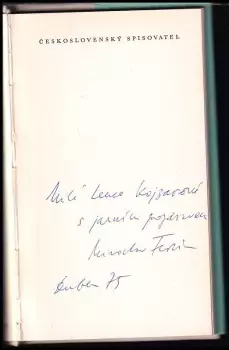 ČESKOSLOVENSKÝ SPISOVATEL
Milé Lence Kojzarové
s jarním pozdravem
Miroslav Florian
duben 75